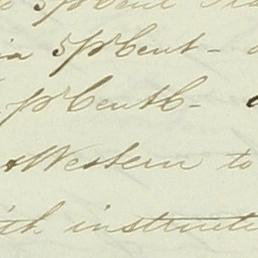 5 pr Cent
in 5 pr Cent -
pr Cent
Western to
ith instructi